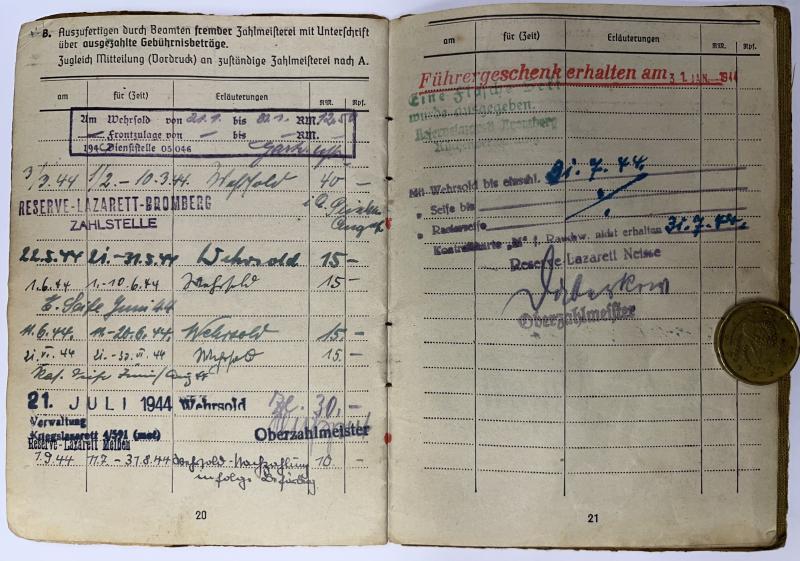 B. Auszufertigen durch Beamten fremder Zahlmeisterei mit Unterschrift
über ausgezahlte Gebührnisbeträge.
Zugleich Mitteilung (Vordruck) an zuständige Zahlmeisterei nach A.
am für (Zeit) Erläuterungen RM. Rpf.
Am Wehrsold von 21.1. bis RM. 12.50
Frontzulage von — bis — RM. —
194 Dienststelle 05046
3.44 1/2. – 10.3.44 Wehrsold 40 –
RESERVE-LAZARETT-BROMBERG
ZAHLSTELLE
22.5.44 21.–31.5.44 Wehrsold 15 –
1.6.44 1.–10.6.44 Wehrsold 15 –
Seife Juni 44
11.6.44 11.–20.6.44. Wehrsold 15. –
21.VI.44 21.–30.VI.44 Wehrsold 15. –
21. JULI 1944 Wehrsold 30.–
Verwaltung
Kriegslazarett 4/591 (mot) Oberzahlmeister
Reserve-Lazarett
1.9.44 11.7. – 31.8.44 Wehrsold-Nachzahlung 10 –
infolge
20
am für (Zeit) Erläuterungen RM. Rpf.
Führergeschenk erhalten am 31. JAN. 1944
Eine Flasche
wurde ausgegeben.
Reservelazarett Bromberg
Mit Wehrsold bis einschl. 31.7.44.
" Seife bis
" Rasierseife
Kontrollkarte "B" f. Rauchw. nicht erhalten 31.7.44.
Reserve-Lazarett Neisse
Oberzahlmeister
21